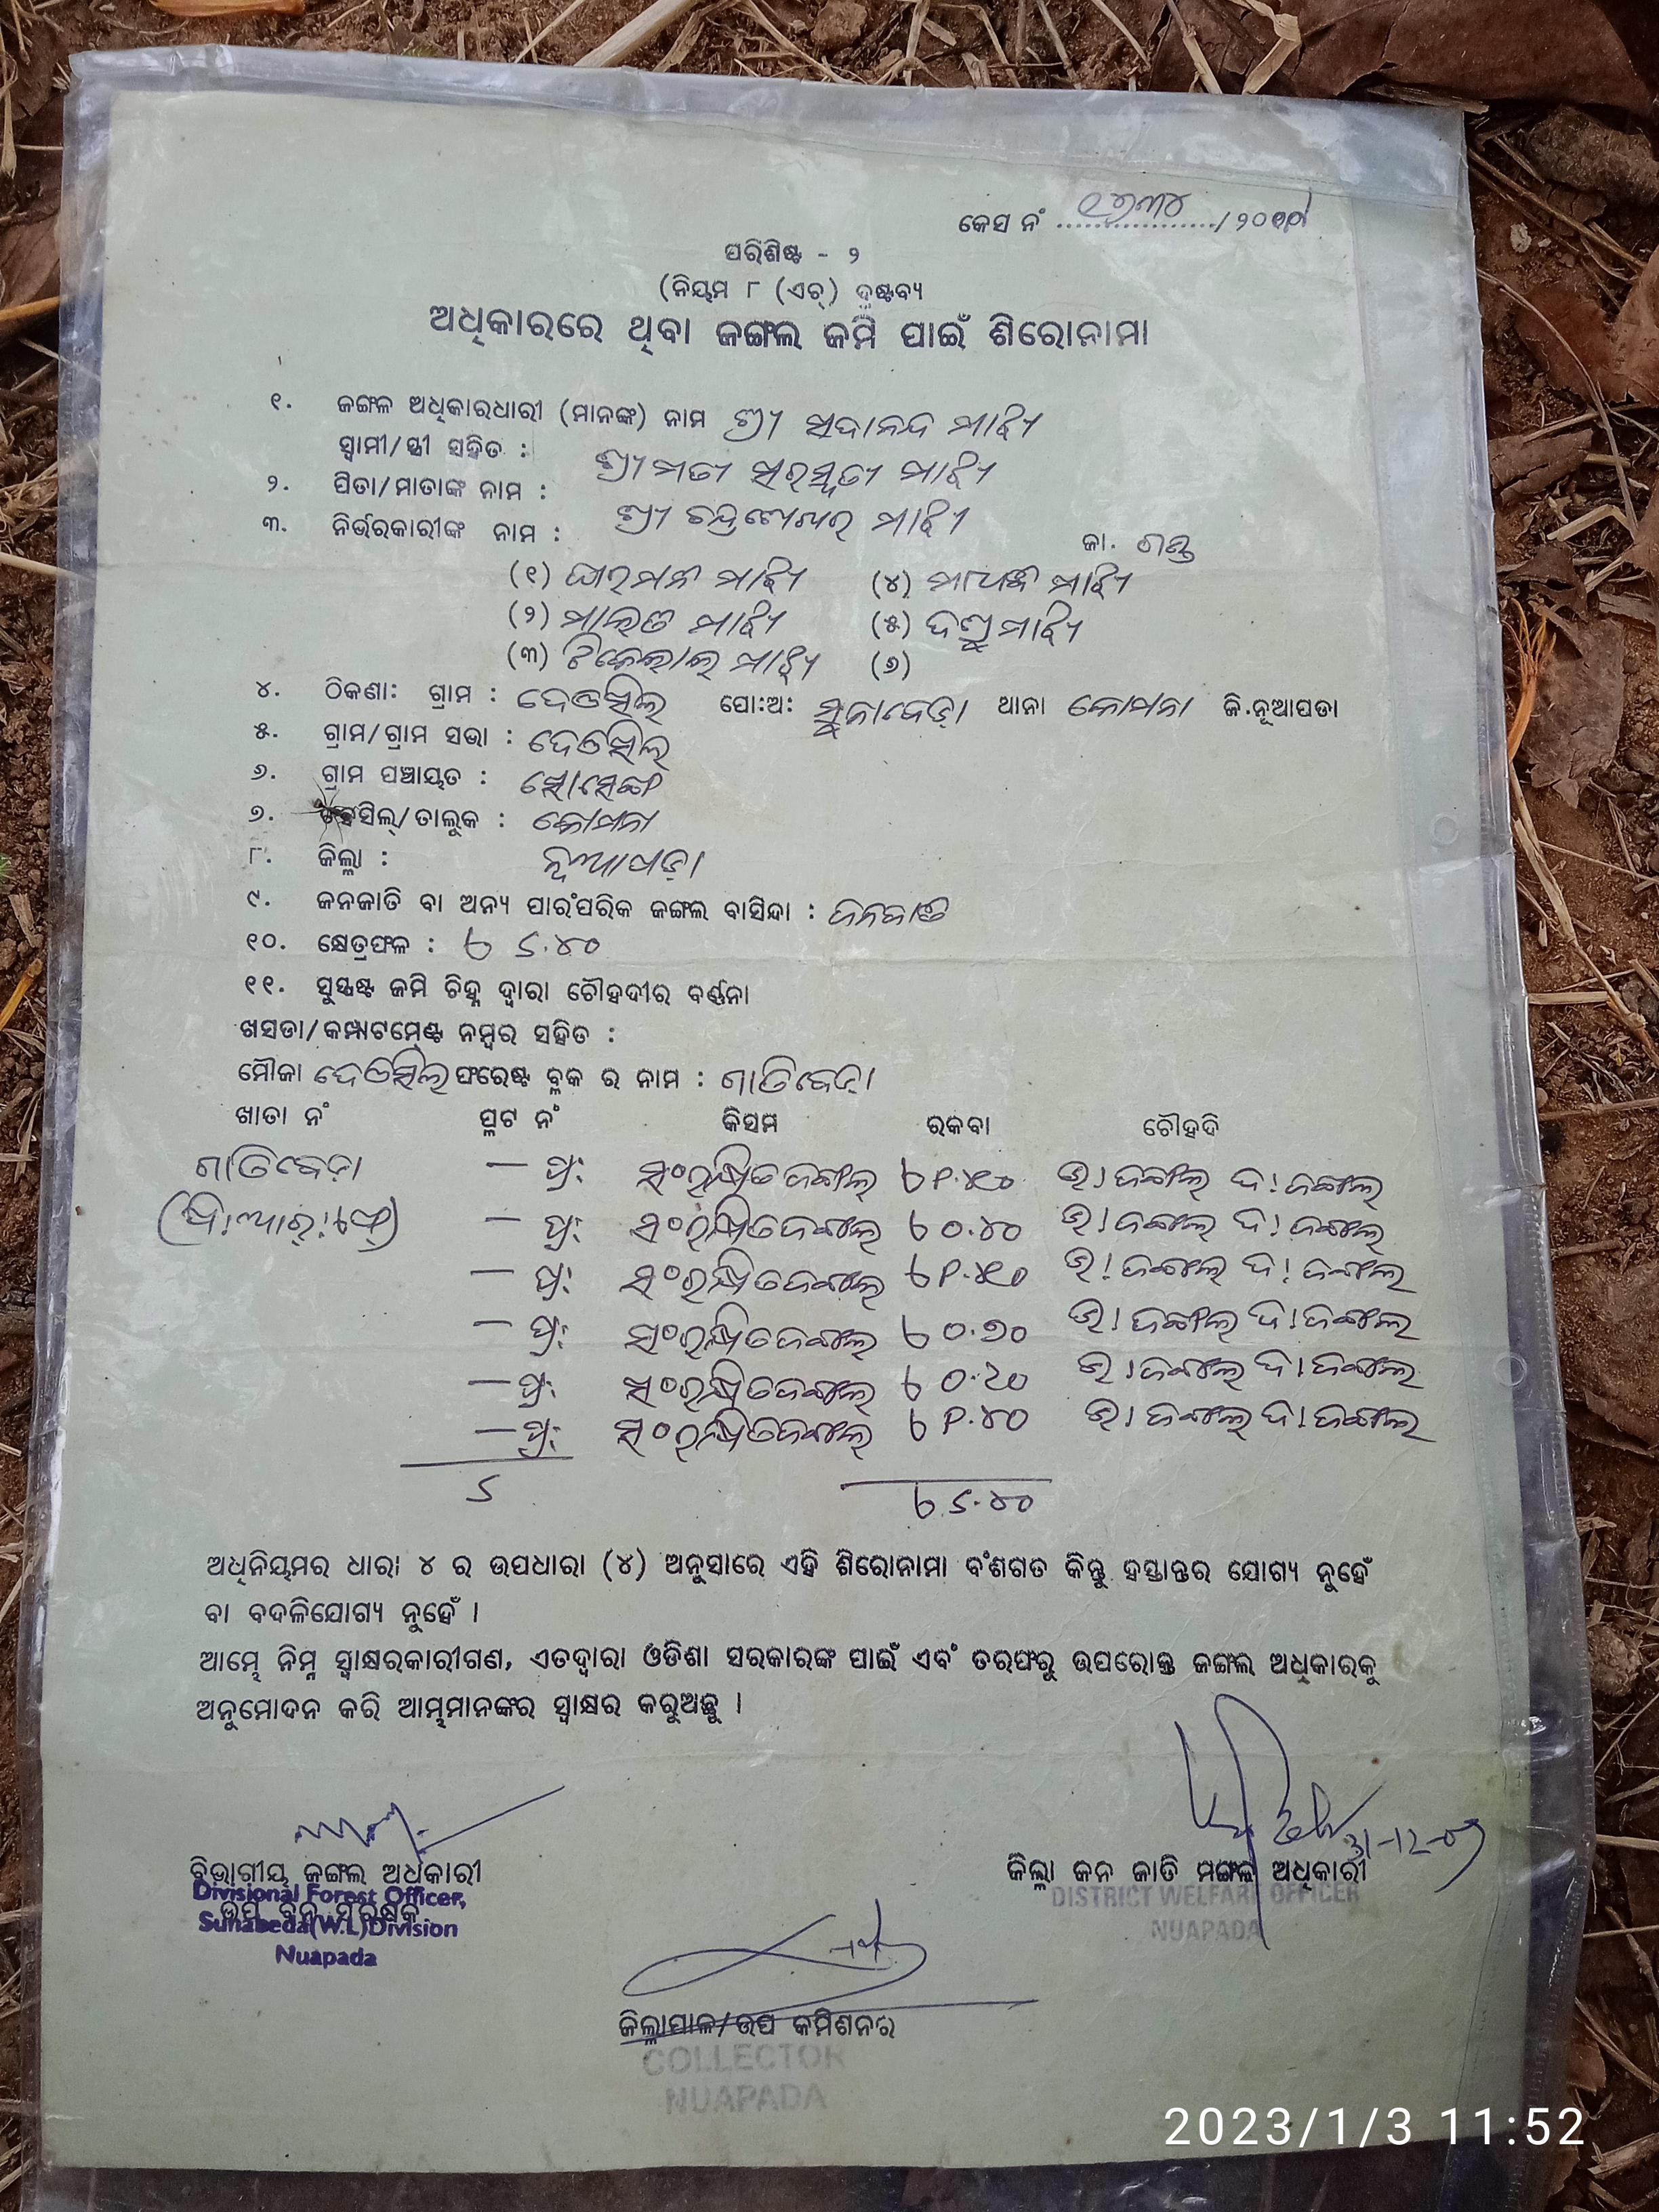 କେସ ନଂ ................../ ୨୦
ପରିଶିଷ୍ଟ - ୨
(ନିୟମ ୮ (ଏଚ୍) ଦ୍ରଷ୍ଟବ୍ୟ
ଅଧିକାରରେ ଥିବା ଜଙ୍ଗଲ ଜମି ପାଇଁ ଶିରୋନାମା
୧. ଜଙ୍ଗଳ ଅଧିକାରଧାରୀ (ମାନଙ୍କ) ନାମ ଶ୍ରୀ ସଦାନନ୍ଦ ମାଝି
ସ୍ୱାମୀ/ସ୍ତ୍ରୀ ସହିତ : ଶ୍ରୀମତୀ ସରସ୍ୱତୀ ମାଝି
୨. ପିତା/ମାତାଙ୍କ ନାମ : ଶ୍ରୀ ମାଝି
୩. ନିର୍ଭରକାରୀଙ୍କ ନାମ : ଜା. ଗଣ୍ଡ
(୧) ମାଝି (୪) ମାଝି
(୨) ମାଝି (୫) ମାଝି
(୩) ମାଝି (୬)
୪. ଠିକଣା: ଗ୍ରାମ : ଦେଓସିଲ ପୋ:ଅ: ସୁନାବେଡ଼ା ଥାନା କୋମନା ଜି.ନୂଆପଡା
୫. ଗ୍ରାମ/ଗ୍ରାମ ସଭା : ଦେଓସିଲ
୬. ଗ୍ରାମ ପଞ୍ଚାୟତ : ସୋସେଙ୍ଗ
୭. ତହସିଲ୍/ତାଲୁକ : କୋମନା
୮. ଜିଲ୍ଲା : ନୂଆପଡ଼ା
୯. ଜନଜାତି ବା ଅନ୍ୟ ପାରଂପରିକ ଜଙ୍ଗଲ ବାସିନ୍ଦା : ଜନଜାତି
୧୦. କ୍ଷେତ୍ରଫଳ : ଏ ୬.୪୦
୧୧. ସୁସ୍ପଷ୍ଟ ଜମି ଚିହ୍ନ ଦ୍ୱାରା ଚୌହଦୀର ବର୍ଣ୍ଣନା
ଖସଡା/କମ୍ପାଟମେଣ୍ଟ ନମ୍ବର ସହିତ :
ମୌଜା ଦେଓସିଲ ଫରେଷ୍ଟ ବ୍ଲକ ର ନାମ : ଗାତିବେଡ଼ା
ଖାତା ନଂ ପ୍ଲଟ ନଂ କିସମ ରକବା ଚୌହଦି
ଗାତିବେଡ଼ା — ପ୍ର: ସଂରକ୍ଷିତ ଜଙ୍ଗଲ ଉ। ଜଙ୍ଗଲ ଦ। ଜଙ୍ଗଲ
(ପି।ଆର।ଏଫ୍) — ପ୍ର: ସଂରକ୍ଷିତ ଜଙ୍ଗଲ ଏ ୦.୪୦ ଉ। ଜଙ୍ଗଲ ଦ। ଜଙ୍ଗଲ
— ପ୍ର: ସଂରକ୍ଷିତ ଜଙ୍ଗଲ ଉ। ଜଙ୍ଗଲ ଦ। ଜଙ୍ଗଲ
— ପ୍ର: ସଂରକ୍ଷିତ ଜଙ୍ଗଲ ଏ ୦.୭୦ ଉ। ଜଙ୍ଗଲ ଦ। ଜଙ୍ଗଲ
— ପ୍ର: ସଂରକ୍ଷିତ ଜଙ୍ଗଲ ଏ ୦.୨୦ ଉ। ଜଙ୍ଗଲ ଦ। ଜଙ୍ଗଲ
— ପ୍ର: ସଂରକ୍ଷିତ ଜଙ୍ଗଲ ଏ ୧.୪୦ ଉ। ଜଙ୍ଗଲ ଦ। ଜଙ୍ଗଲ
୬ ଏ ୬.୪୦
ଅଧିନିୟମର ଧାରା ୪ ର ଉପଧାରା (୪) ଅନୁସାରେ ଏହି ଶିରୋନାମା ବଂଶଗତ କିନ୍ତୁ ହସ୍ତାନ୍ତର ଯୋଗ୍ୟ ନୁହେଁ
ବା ବଦଳିଯୋଗ୍ୟ ନୁହେଁ ।
ଆମ୍ଭେ ନିମ୍ନ ସ୍ୱାକ୍ଷରକାରୀଗଣ, ଏତଦ୍ୱାରା ଓଡିଶା ସରକାରଙ୍କ ପାଇଁ ଏବଂ ତରଫରୁ ଉପରୋକ୍ତ ଜଙ୍ଗଲ ଅଧିକାରକୁ
ଅନୁମୋଦନ କରି ଆମ୍ଭମାନଙ୍କର ସ୍ୱାକ୍ଷର କରୁଅଛୁ ।
31-12-09
ବିଭାଗୀୟ ଜଙ୍ଗଲ ଅଧିକାରୀ
Divisional Forest Officer,
ଉପ ବନ ସଂରକ୍ଷକ
Sunabeda(W.L)Division
Nuapada
ଜିଲ୍ଲା ଜନ ଜାତି ମଙ୍ଗଳ ଅଧିକାରୀ
DISTRICT WELFARE OFFICER
NUAPADA
ଜିଲ୍ଲାପାଳ/ଉପ କମିଶନର
COLLECTOR
NUAPADA
2023/1/3 11:52